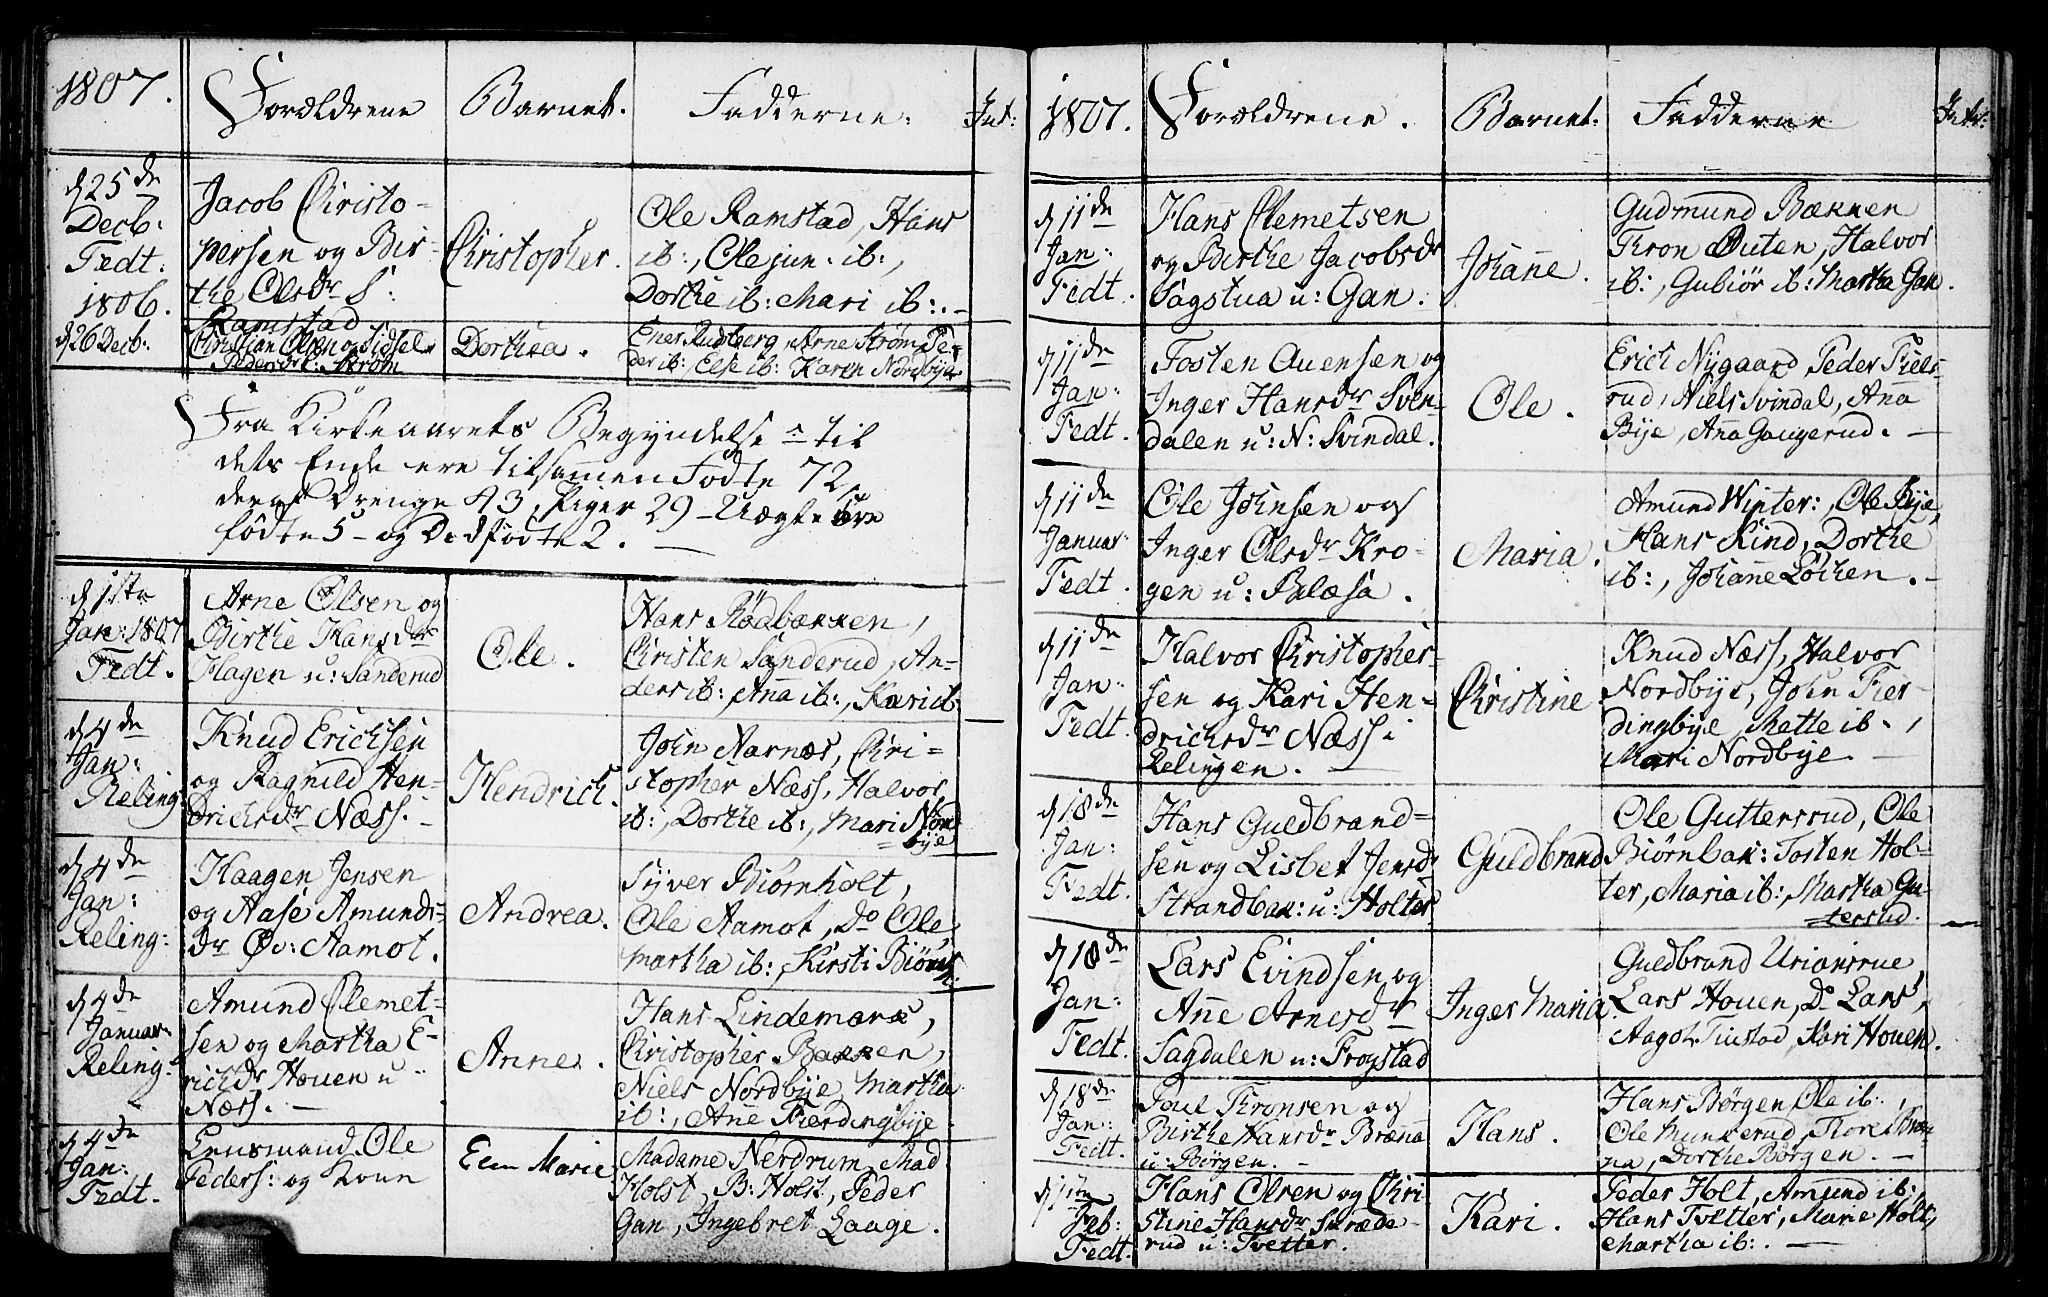 1807.
Forældrene
Barnet.
Fadderne:
Int:
d 25de
Decb:
Fedt:
1806.
Jacob Christo-
phersen og Bir-
the Olsdr S:
Ramstad
Christopher.
Ole Ramstad, Hans
ib:, Ole jun: ib:,
Dorthe ib: Mari ib:. -
d 26 Decb:
Christian Olsen og Sidsel
Pedersdr: Strøm
Dorthea.
Ener Rudsberg, Arne Strøm, Pe-
der ib:, Else ib: Karen Nordbye
Fra Kirkeaarets Begyndelse til
dets Ende ere tilsammen Fødte 72,
deraf Drenge 43, Piger 29 - Uægte ere
fødte 5 - og Dødfødte 2. -
d 1ste
Jan: 1807
Fedt.
Arne Olsen og
Birthe Hansdr
Hagen u: Sanderud
Ole.
Hans Rødbakken,
Christen Sanderud, An-
ders ib: Anna ib:, Kari ib:
d 4de
Jan:
Reling:
Knud Erichsen
og Ragnild Hen-
drichsdr Næss. -
Hendrich.
John Narnæs, Chri-
stopher Næss, Halvor
ib:, Dorthe ib:, Mari Nord
bye
d 4de
Jan:
Reling:
Haagen Jensen
og Aase Amunds-
dr Øv: Aamot.
Andrea.
Syver Biørnholt,
Ole Aamot, Do Ole
Martha ib:, Kirsti Biørnh:
d 4de
Januar
Reling:
Amund Clemet-
sen og Martha E-
richsdr Houen u
Næss. -
Anne.
Hans Lindemark,
Christopher Bakken,
Niels Nordbye, Martha
ib:, Anne Fierdingbye.
d 4de
Jan:
Fedt.
Lensmand Ole
Peders: og Kone
Elen Marie
Madame Nerdrum, Mad
Holst, B: Holst, Peder
Gan, Ingebret Laage.
1807.
Forældrene.
Barnet:
Fadderne
Intr:
d 11de
Jan:
Fedt.
Hans Clemetsen
og Birthe Jacobsdr
Sagstua u: Gan.
Johanne.
Gudmund Bakken
Tron Outen, Halvor
ib:, Gubiør ib: Martha Gan.
d 11de
Jan:
Fedt.
Tosten Auensen og
Inger Hansdr Sven-
dalen u: N: Svindal.
Ole.
Erich Nygaard, Peder Fiels-
rud, Niels Svindal, Anna
Bye, Anna Gaugerud. -
d 11de
Januar
Fedt.
Ole Johnsen og
Inger Olsdr Kro-
gen u: Balæsa.
Maria.
Amund Winter:, Ole Bye,
Hans Kind, Dorthe
ib:, Johanne Løchen. -
d 11de
Jan:
Fedt.
Halvor Christopher-
sen og Kari Hen-
drichsdr Næss i
Relingen. -
Christine
Knud Næss, Halvor
Nordbye, John Fier-
dingbye, Mette ib:,
Mari Nordbye. -
d 18de
Jan:
Fedt.
Hans Guldbrand-
sen og Lisbet Jensdr
Strandbak: u: Holter
Guldbrand
Ole Guttersrud, Ole
Biørnbak: Tosten Hol-
ter, Maria ib:, Martha Gu-
tersrud.
d 18de
Jan:
Fedt.
Lars Evindsen og
Anne Arnesdr
Sagdalen u: Frogstad
Inger Maria.
Guldbrand
Lars Houen, Do Lars,
Aagot Tiistad, Kari Houen.
d 18de
Jan:
Fedt.
Poul Tronsen og
Birthe Hansdr Brænna
u: Børgen. -
Hans.
Hans Børgen, Ole ib:,
Ole Munkerud, Tore Bræn-
na, Dorthe Børgen. -
d 1ste
Feb:
Fedt.
Hans Olsen og Chri
stine Hansdr Skræde-
rud u: Tvetter.
Kari.
Peder Holt, Amund ib:,
Hans Tvetter, Marie Holt,
Martha ib:. -